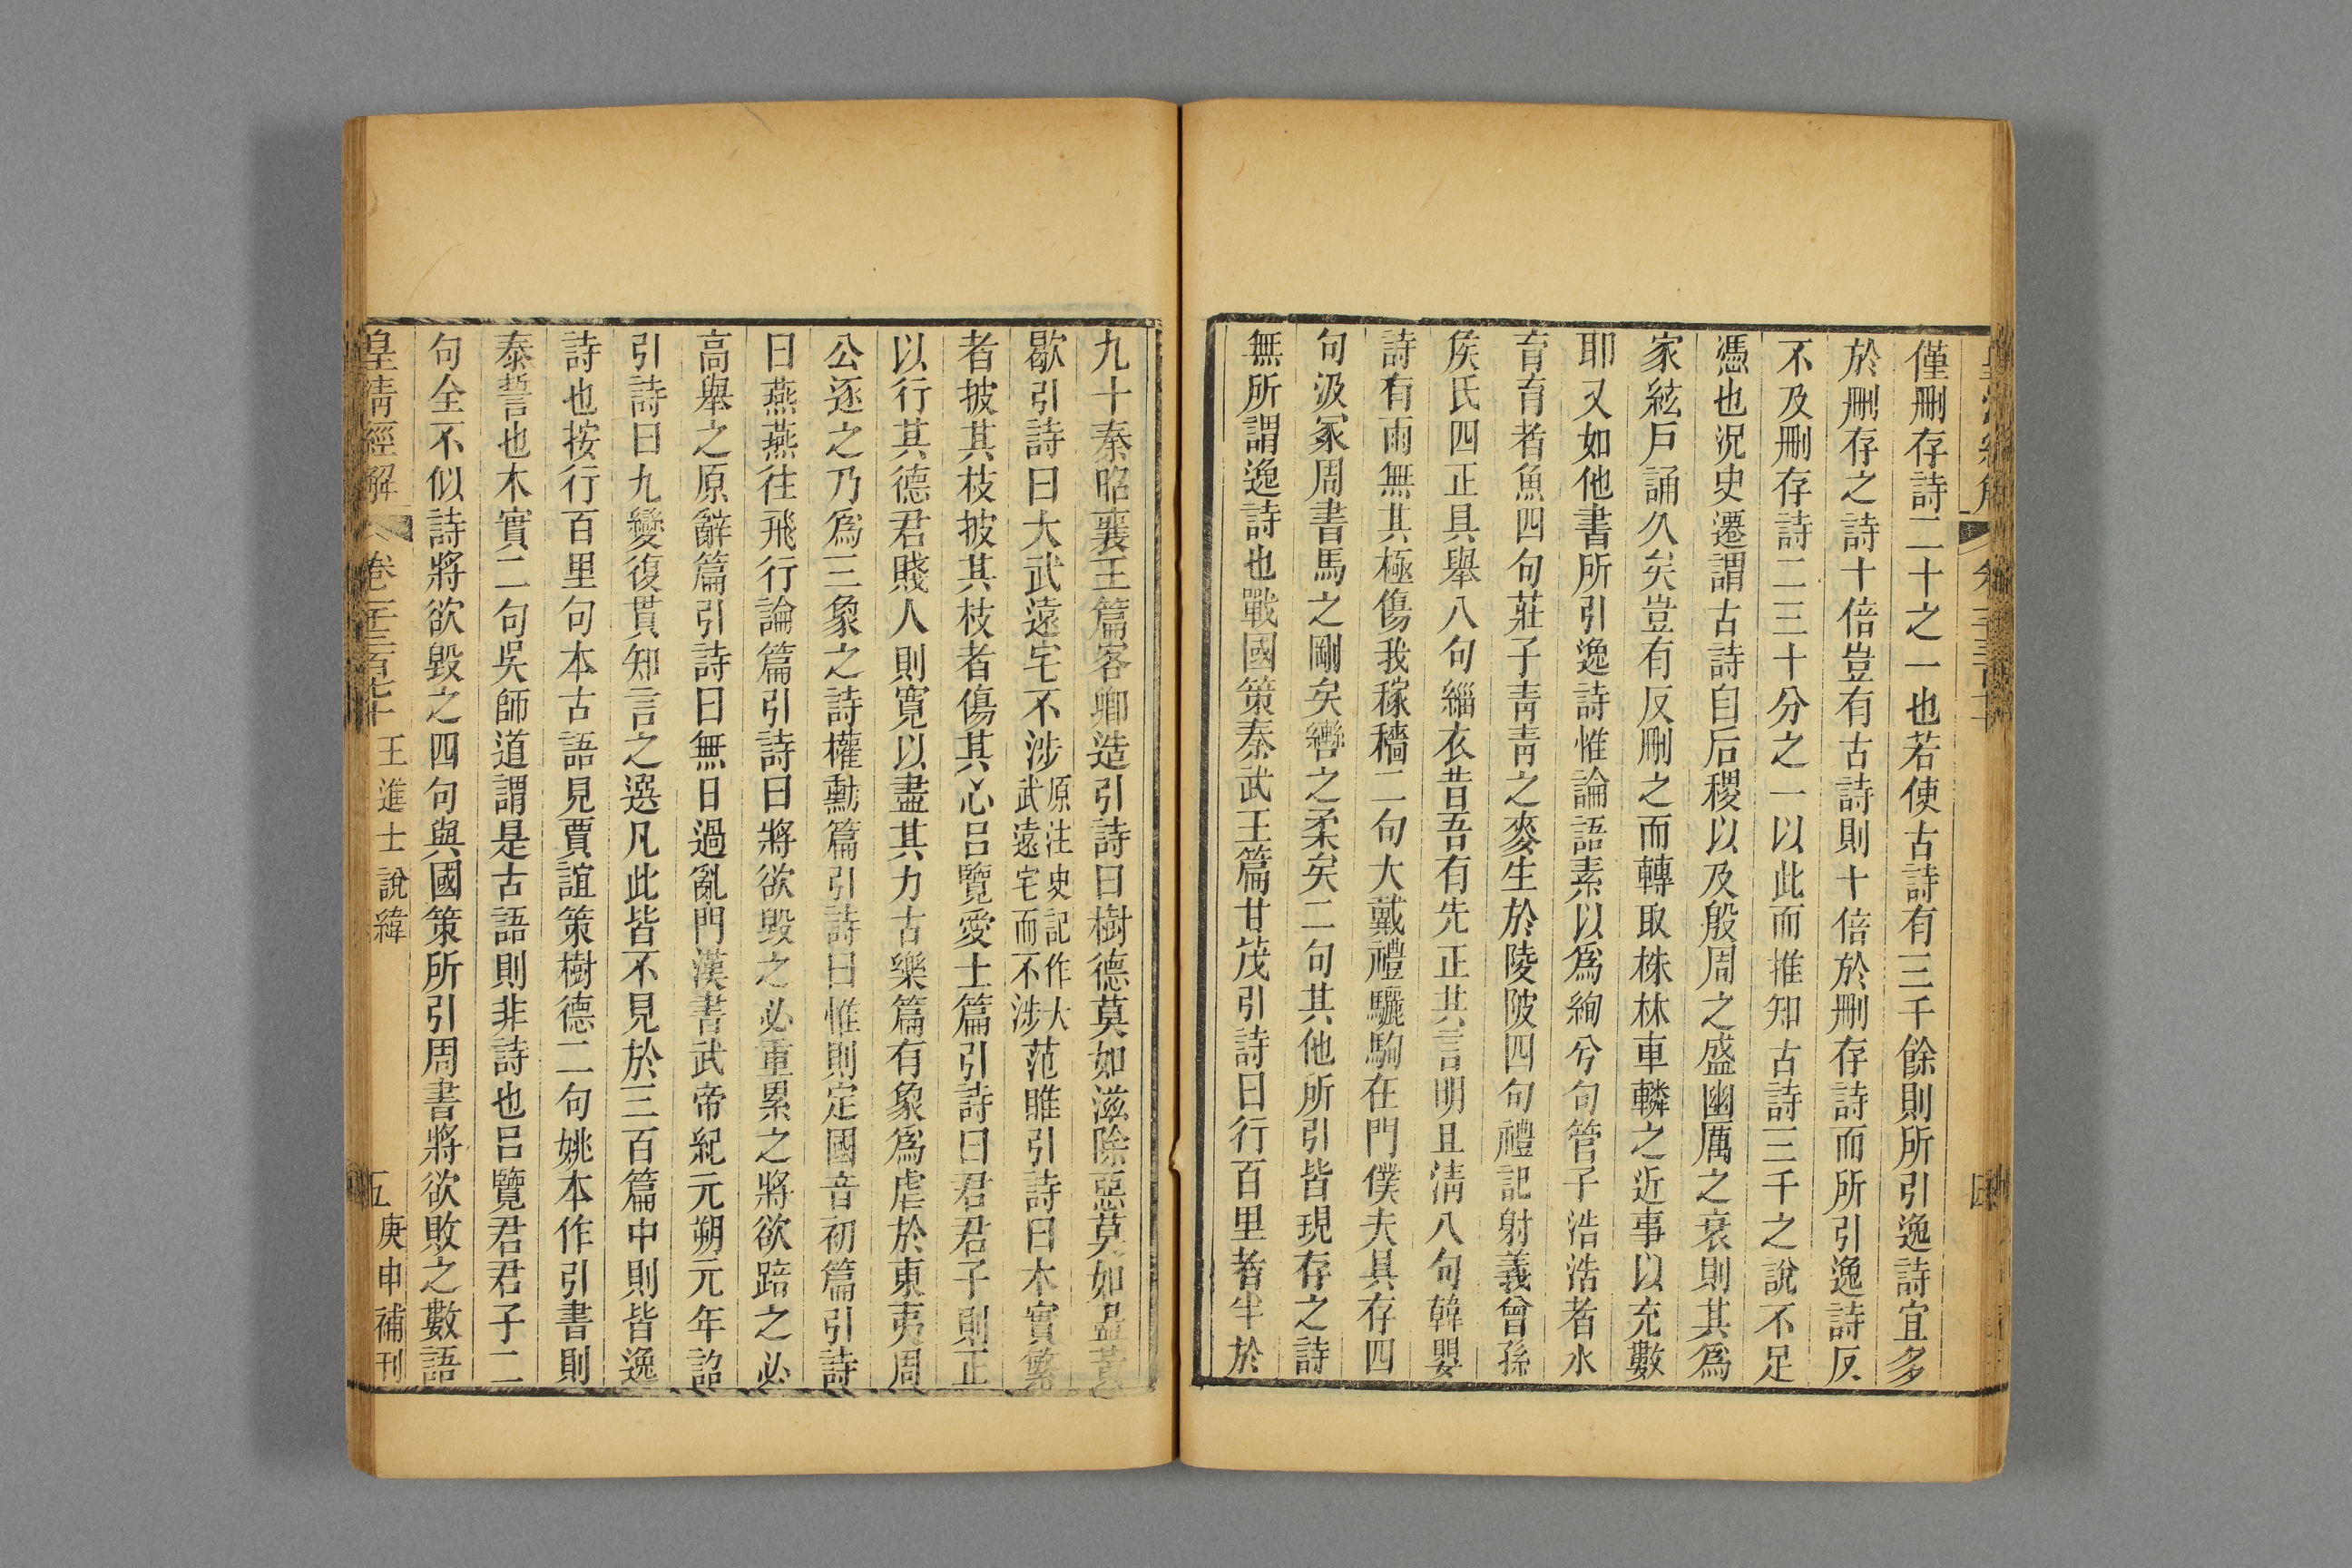 僅刪存詩二十之一也若使古詩有三千餘則所引逸詩宜多
於刪存之詩十倍豈有古詩則十倍於刪存詩而所引逸詩反
不及刪存詩二三十分之一以此而推知古詩三千之說不足
憑也況史遷謂古詩自后稷以及殷周之盛幽厲之衰則其爲
家絃戶誦久矣豈有反刪之而轉取株林車轔之近事以充數
耶又如他書所引逸詩惟論語素以爲絢兮句管子浩浩者水
育育者魚四句莊子靑靑之麥生於陵陂四句禮記射義曾孫
侯氏四正具舉八句緇衣昔吾有先正其言明且淸八句韓嬰
詩有雨無其極傷我稼穡二句大戴禮驪駒在門僕夫具存四
句汲冢周書馬之剛矣轡之柔矣二句其他所引皆現存之詩
無所謂逸詩也戰國策秦武王篇甘茂引詩曰行百里者半於
九十秦昭襄王篇客卿造引詩曰樹德莫如滋除惡莫如盡黃
歇引詩曰大武遠宅不涉原注史記作大武遠宅而不涉范雎引詩曰木實繁
者披其枝披其枝者傷其心呂覽愛士篇引詩曰君君子則正
以行其德君賤人則寬以盡其力古樂篇有象爲虐於東夷周
公逐之乃爲三象之詩權勳篇引詩曰惟則定國音初篇引詩
曰燕燕往飛行論篇引詩曰將欲毀之必重累之將欲踣之必
高舉之原辭篇引詩曰無日過亂門漢書武帝紀元朔元年詔
引詩曰九變復貫知言之選凡此皆不見於三百篇中則皆逸
詩也按行百里句本古語見賈誼策樹德二句姚本作引書則
泰誓也木實二句吳師道謂是古語則非詩也呂覽君君子二
句全不似詩將欲毀之四句與國策所引周書將欲敗之數語
皇淸經解 卷一千三百七十 王進士說緯 五 庚申補刊